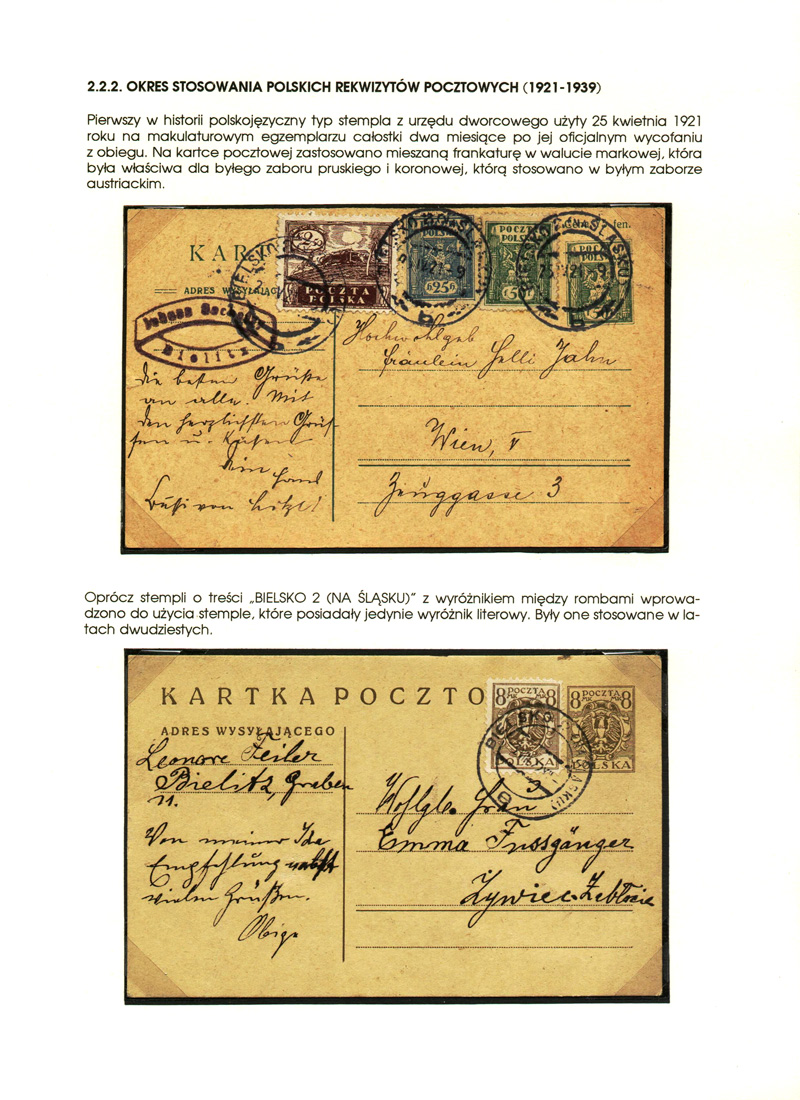 2.2.2. OKRES STOSOWANIA POLSKICH REKWIZYTÓW POCZTOWYCH (1921-1939)
Pierwszy w historii polskojęzyczny typ stempla z urzędu dworcowego użyty 25 kwietnia 1921
roku na makulaturowym egzemplarzu całostki dwa miesiące po jej oficjalnym wycofaniu
z obiegu. Na kartce pocztowej zastosowano mieszaną frankaturę w walucie markowej, która
była właściwa dla byłego zaboru pruskiego i koronowej, którą stosowano w byłym zaborze
austriackim.
KART
ADRES WYSYŁAJĄC
POCZTA
POLSKA
25
POCZTA
POLSKA
50
POCZTA
len.
BIELSKO 2 (NA ŚLĄSKU)
25 IV 21 - 9
b
Bielitz
Hochwohlgeb
Fräulein Helli Jahn
Wien, V
Zeuggasse 3
die besten Grüße
an alle. Mit
den herzlichsten Grüs-
sen u. Küssen
Dein
Oprócz stempli o treści „BIELSKO 2 (NA ŚLĄSKU)” z wyróżnikiem między rombami wprowa-
dzono do użycia stemple, które posiadały jedynie wyróżnik literowy. Były one stosowane w la-
tach dwudziestych.
KARTKA POCZTO
8 POCZTA MK 8
POLSKA
8 POCZTA MK 8
POLSKA
BIELSKO
ADRES WYSYŁAJĄCEGO
Leonore Feiler
Bielitz, Graben
11.
Von meiner Ida
Empfehlung nebst
vielen Grüßen.
Obige
Wohlgb. Frau
Emma Fussgänger
Żywiec-Zabłocie